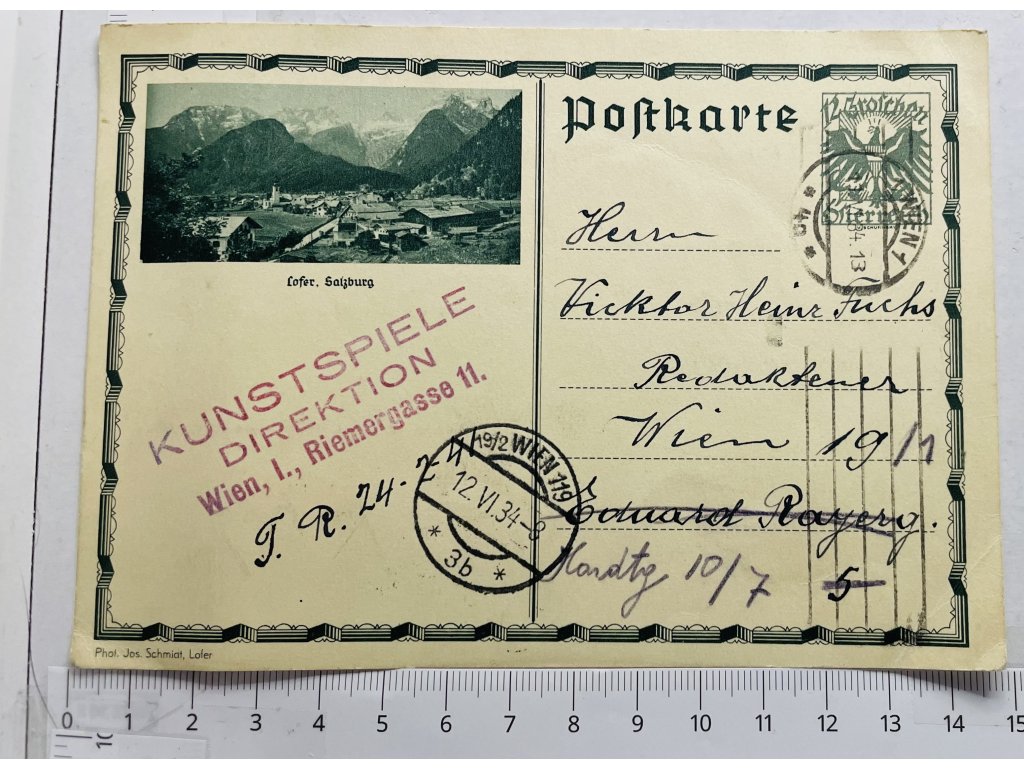 Postkarte
12 Groschen
Österreich
WIEN 1
* 40 *
34. 13
Lofer, Salzburg
Herrn
Vicktor Heinz Fuchs
Redakteuer
Wien 19/1
Eduard Rayerg.
5
Hardtg 10/7
KUNSTSPIELE
DIREKTION
Wien, I., Riemergasse 11.
T. R. 24-2-41
19/2 WIEN 119
12. VI. 34-8
* 3b *
Phot. Jos. Schmidt, Lofer
0 1 2 3 4 5 6 7 8 9 10 11 12 13 14 15